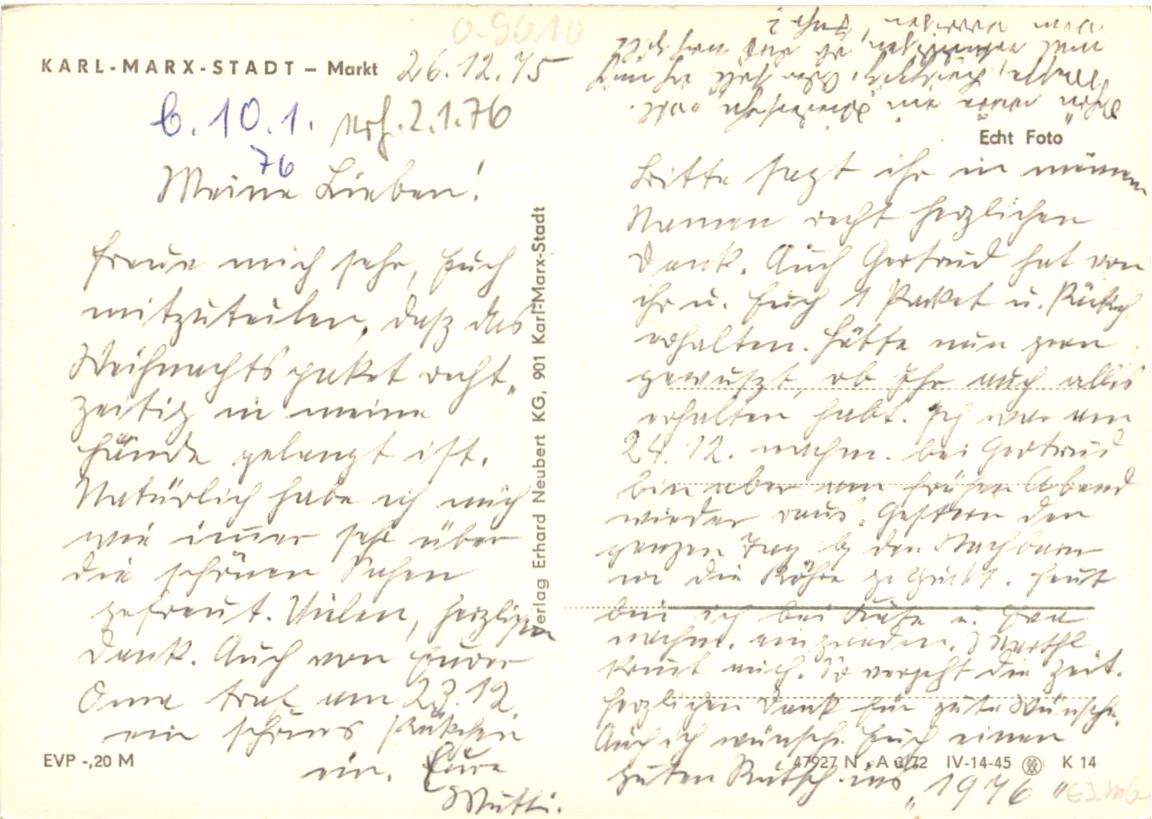 0-9010
KARL-MARX-STADT – Markt 26.12.75
b. 10.1. 2.1.76
76
Meine Lieben!
Freue mich sehr, Euch
mitzuteilen, daß das
Weihnachtspaket recht„
zeitig in meine
Hände gelangt ist.
Natürlich habe ich mich
wie immer sehr über
die schönen Sachen
gefreut. Vielen, herzlichen
Dank. Auch von Eurer
Oma traf am 23.12.
ein schönes Päckchen
ein. Eure
Mutti.
EVP -,20 M
Verlag Erhard Neubert KG, 901 Karl-Marx-Stadt
Echt Foto
Bitte sagt ihr in meinem
Namen recht herzlichen
Dank. Auch Gertrud hat von
ihr u. Euch 1 Paket u. Päckch.
erhalten. Hätte nun gern
gewußt, ob Ihr auch alles
erhalten habt. Ich war am
24.12. nachm. bei Gertrud
bin aber am frühen Abend
wieder raus. Gestern den
ganzen Tag b. den Nachbarn
in die Röhre geguckt. Heut
bin ich bei Käte u. Eva
nachm. eingeladen.
mich. So vergeht die Zeit.
Herzlichen Dank für gute Wünsche.
Auch ich wünsche Euch einen
guten Rutsch ins „1976"
47927 N A 3/72 IV-14-45 K 14